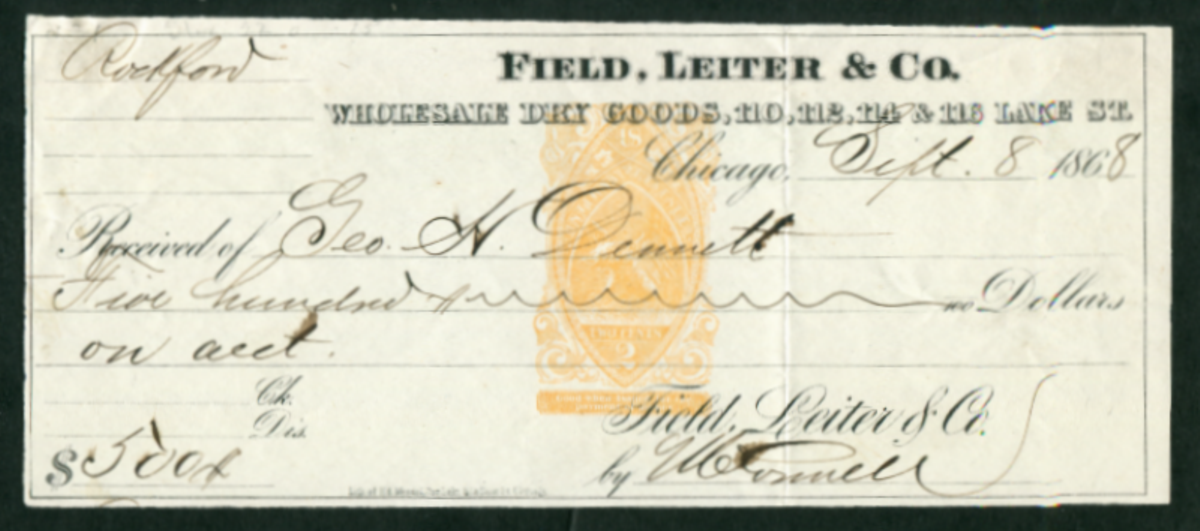 Rockford
FIELD, LEITER & CO.
WHOLESALE DRY GOODS, 110, 112, 114 & 116 LAKE ST.
Chicago, Sept. 8 1868
Received of Geo. H. Dennett
Five hundred & no Dollars
on acct.
Ck.
Dis.
TWO CENTS
2
Field, Leiter & Co.
$500 by McConnell